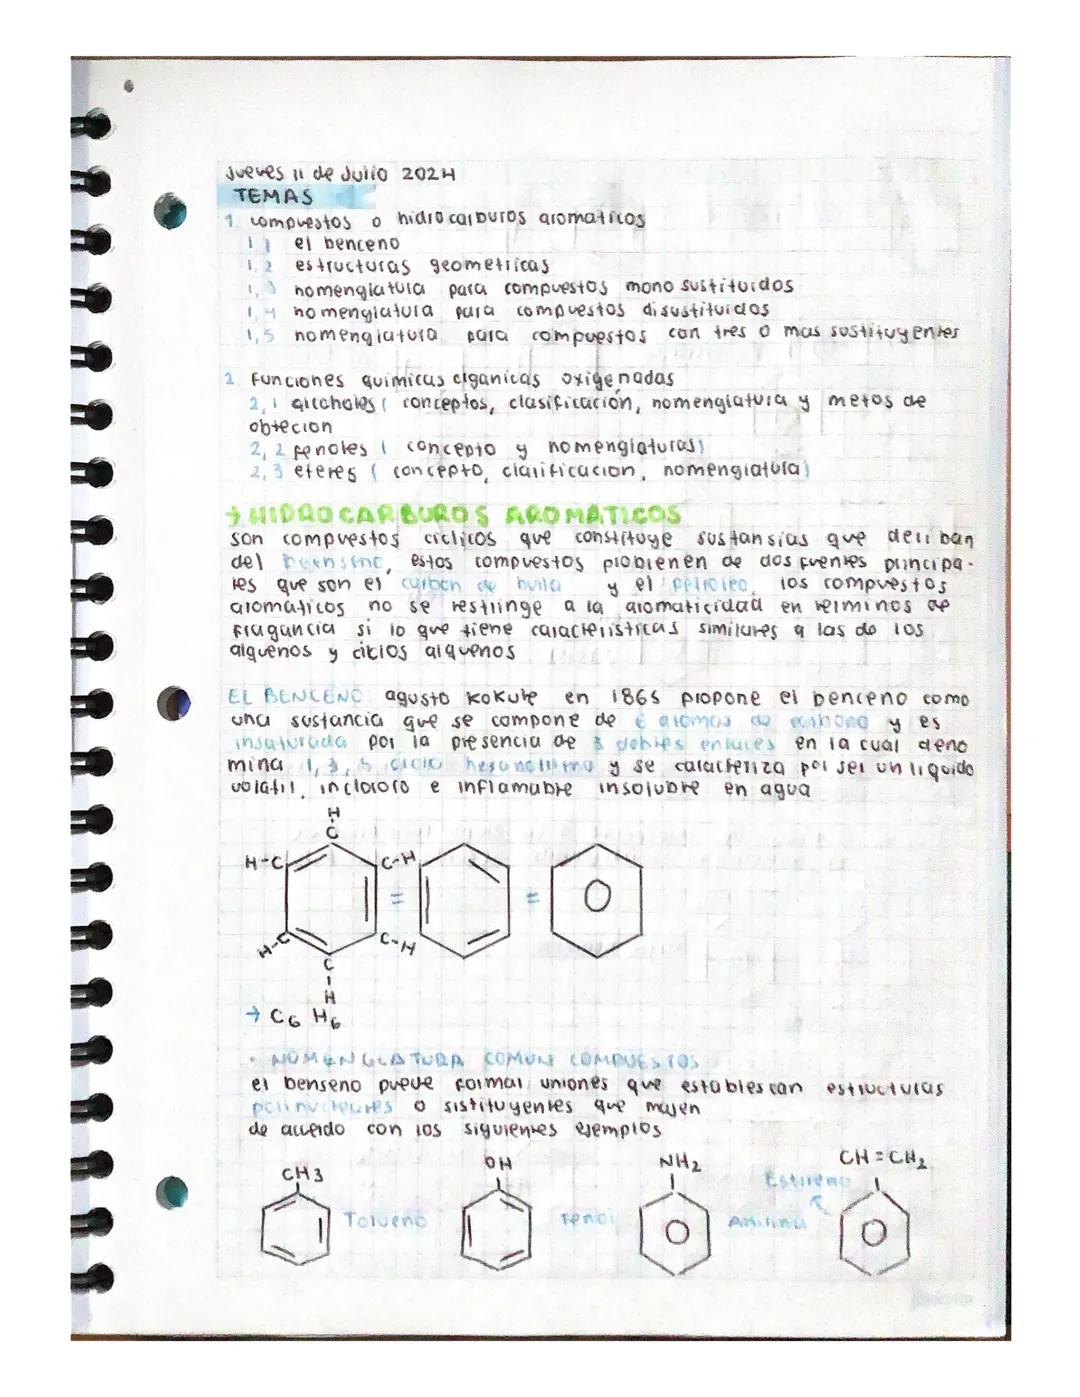 Jueves 11 de Julio 2024
TEMAS
1. compuestos o hidrocarburos aromaticos
1.1 el benceno
1,2 estructuras geometricas
1,3 nomenglatura para compuestos mono sustituidos
1,4 nomenglatura para compuestos disustituidos
1,5 nomenglatura para compuestos con tres o mas sustituyentes
2. Funciones quimicas organicas oxigenadas
2,1 alcoholes ( conceptos, clasificación, nomenglatura y metos de
obtecion
2,2 fenoles ( concepto y nomenglaturas)
2,3 eteres ( concepto, clarificacion, nomenglatura)
→ HIDROCARBUROS AROMATICOS
son compuestos ciclicos que constituye sustansias que deriban
del , estos compuestos probienen de dos fuentes principa-
les que son el carbon de hulla y el petroleo, los compuestos
aromáticos no se restringe a la aromaticidad en terminos de
fragancia si lo que tiene caracteristicas similares a las de los
alquenos y ciklos alquenos
EL BENCENO: agusto Kokule en 1865 propone el benceno como
una sustancia que se compone de 6 atomos de carbono y es
insaturada por la presencia de 3 dobles enlaces en la cual deno
mina 1,3,5, ciclo y se caracteriza por ser un liquido
volatil, incloloro e inflamable insoluble en agua
H
C
H-C C-H
= =
H-C C-H
C
H
→ C6 H6
• NOMENGLATURA COMUN COMPUESTOS
el benseno puede formar uniones que establescan estructuras
polinucleares o sistituyentes que majen
de acuerdo con los siguientes ejemplos
CH3 OH NH2 CH=CH2
Estireno
Tolueno fenol Anilina